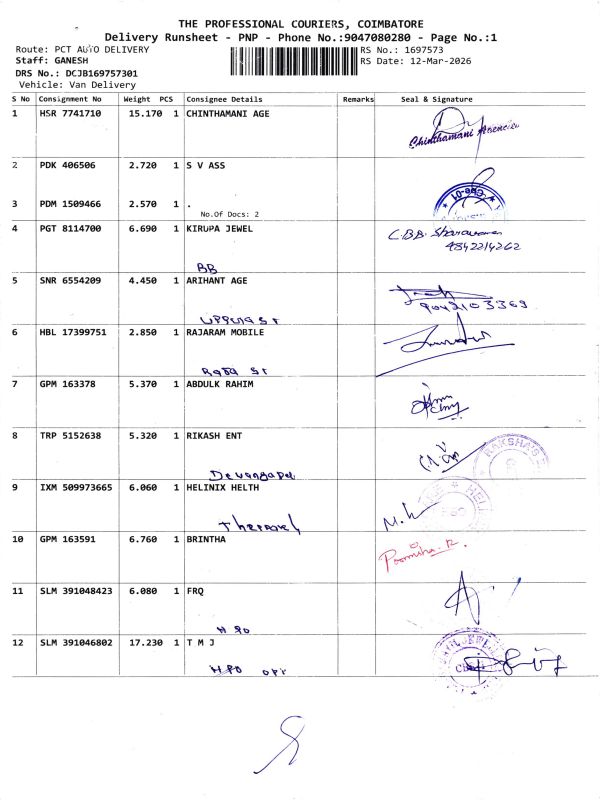 THE PROFESSIONAL COURIERS, COIMBATORE
Delivery Runsheet - PNP - Phone No.:9047080280 - Page No.:1
Route: PCT AUTO DELIVERY
RS No.: 1697573
Staff: GANESH
RS Date: 12-Mar-2026
DRS No.: DCJB169757301
Vehicle: Van Delivery
S No Consignment No Weight PCS Consignee Details Remarks Seal & Signature
1 HSR 7741710 15.170 1 CHINTHAMANI AGE
Chinthamani Agencies
2 PDK 406506 2.720 1 S V ASS
3 PDM 1509466 2.570 1 .
No.Of Docs: 2
4 PGT 8114700 6.690 1 KIRUPA JEWEL
C.B.B.
4842214262
BB
5 SNR 6554209 4.450 1 ARIHANT AGE
9042103369
6 HBL 17399751 2.850 1 RAJARAM MOBILE
Raja St
7 GPM 163378 5.370 1 ABDULK RAHIM
8 TRP 5152638 5.320 1 RIKASH ENT
RAKSHA'S
9 IXM 509973665 6.060 1 HELINIX HELTH
M.h
10 GPM 163591 6.760 1 BRINTHA
11 SLM 391048423 6.080 1 FRQ
12 SLM 391046802 17.230 1 T M J